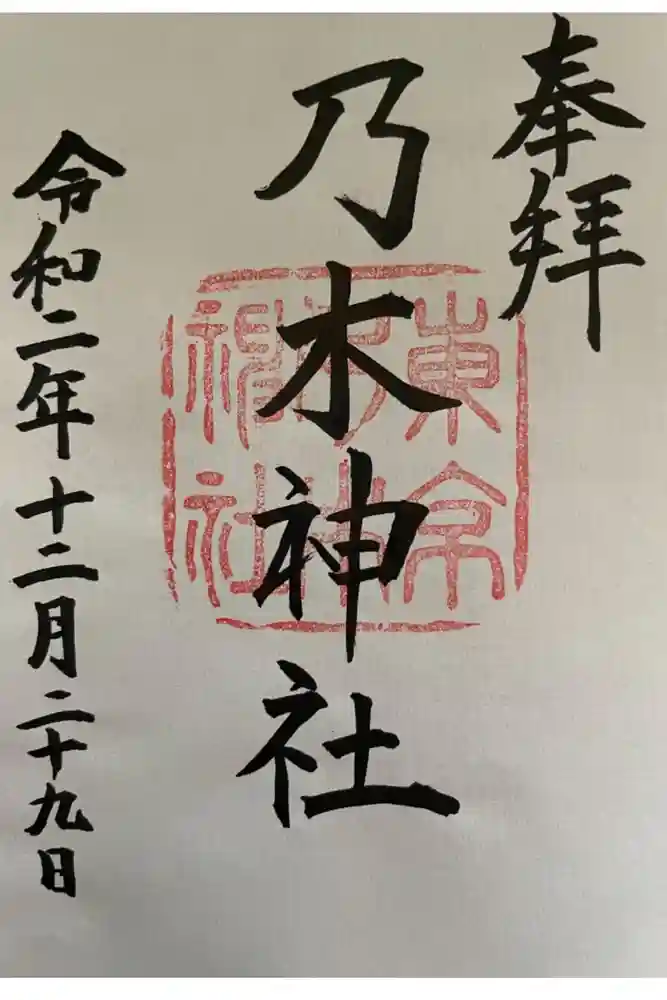 奉拝
乃木神社
令和二年十二月二十九日
東京乃木神社